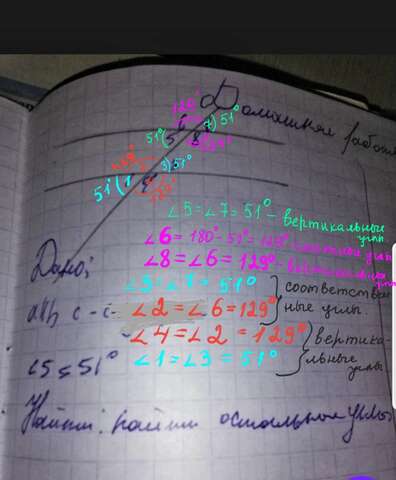 Домашняя работа
129°
6
7) 51°
51° (5
8
129°
129°
2
3) 51°
51° (1
4
129°
∠5 = ∠7 = 51° - вертикальные углы
∠6 = 180° - 51° = 129° - углы
∠8 = ∠6 = 129° - вертикальные углы
Дано:
∠3 = ∠7 = 51°
a||b, c - с
∠2 = ∠6 = 129°
соответственные углы.
∠4 = ∠2 = 129°
∠5 = 51°
∠1 = ∠3 = 51°
вертикальные углы
Найти: найти остальные углы